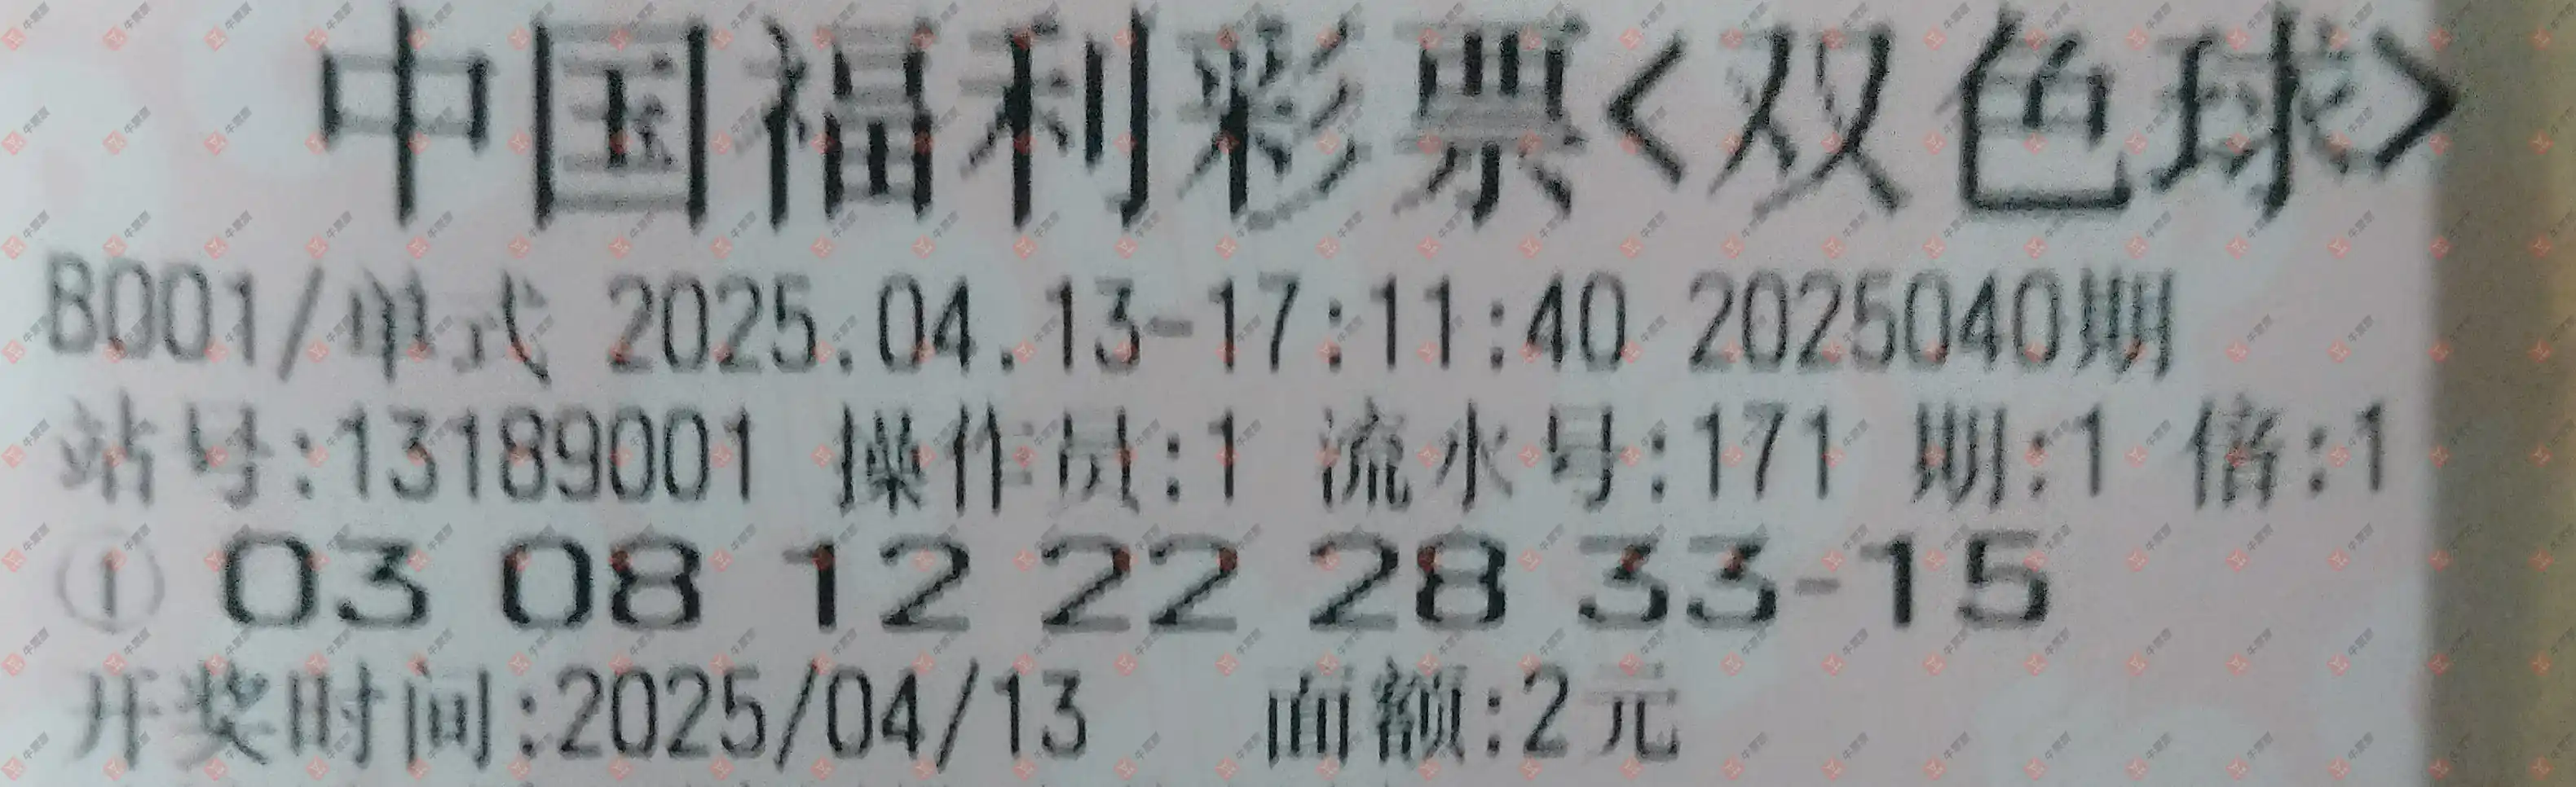 中国福利彩票<双色球>
B001/单式 2025.04.13-17:11:40 2025040期
站号:13189001 操作员:1 流水号:171 期:1 倍:1
① 03 08 12 22 28 33-15
开奖时间:2025/04/13 面额:2元